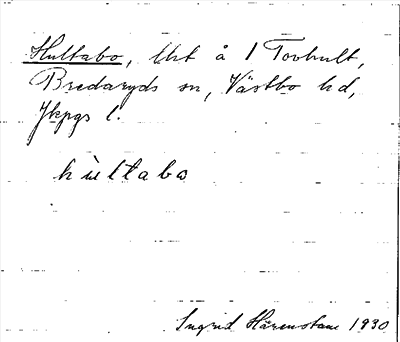 Hultabo, lht å 1 Torhult,
Bredaryds sn, Västbo hd,
Jkpgs l.
hùltabo
Ingrid Härenstam 1930